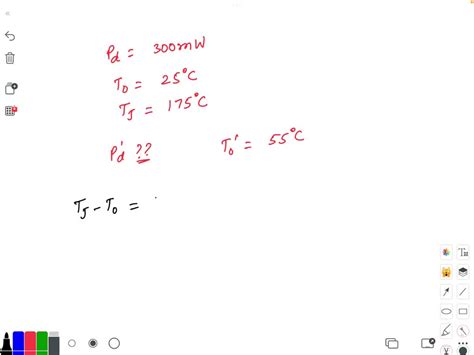 Pd = 300mW
To = 25°C
TJ = 175°C
Pd' ?? To' = 55°C
TJ - To =